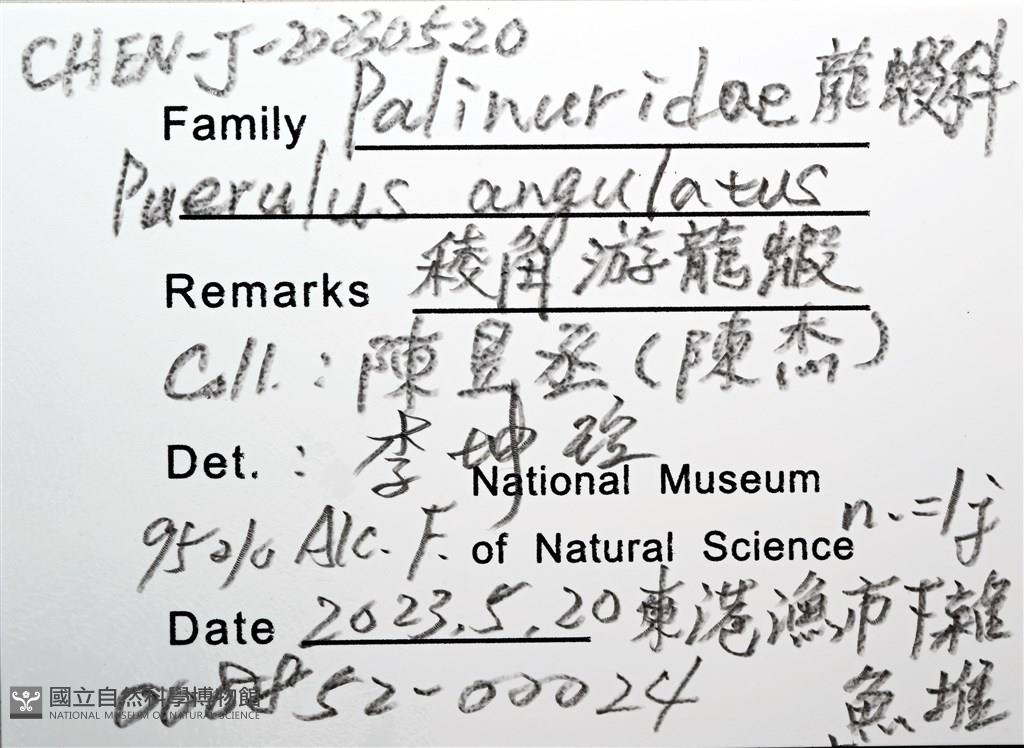 CHEN-J-20230520
Family Palinuridae 龍蝦科
Puerulus angulatus
Remarks 稜角游龍蝦
Coll.: 陳昱丞(陳杰)
Det.: 李坤瑄
National Museum
95% Alc. F. of Natural Science n.=1♀
Date 2023.5.20 東港漁市下雜
魚堆
008852-00024
國立自然科學博物館
NATIONAL MUSEUM OF NATURAL SCIENCE